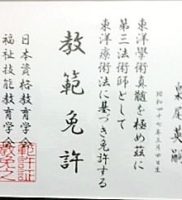 東尾英嗣
昭和四十七年三月四日生
東洋學術真髄を極め茲に
第三法術師として
東洋療術法に基づき免許する
教範免許
日本資格教育学会
福祉技能教育学会